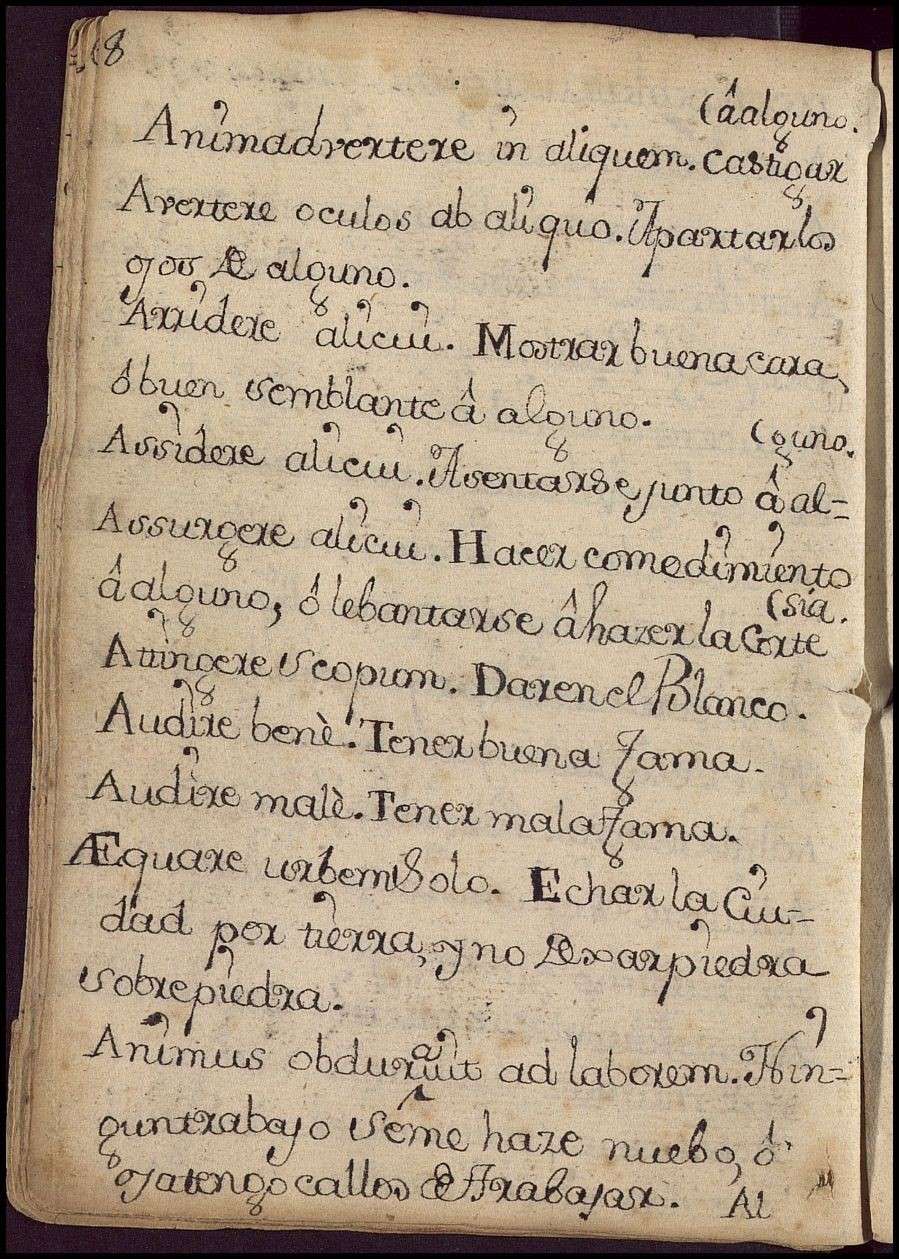 8
(â alguno.
Animadvertere in aliquem. Castigar
Avertere oculos ab aliquo. Apartar los
ojos de alguno.
Arridere alicui. Mostrar buena cara,
ô buen semblante â alguno.
(guno.
Assidere alicui. Asentarse junto â al=
Assurgere alicui. Hacer comedimiento
â alguno, ô lebantarse â hazer la Corte
(sia.
Attingere scopum. Dar en el Blanco.
Audire benè. Tener buena fama.
Audire malè. Tener mala fama.
Æquare urbem Solo. Echar la Ciu=
dad por tierra, y no dexar piedra
sobre piedra.
Animus obduruit ad laborem. Nin=
gun trabajo se me haze nuebo, ô
ya tengo callos de trabajar.
Al